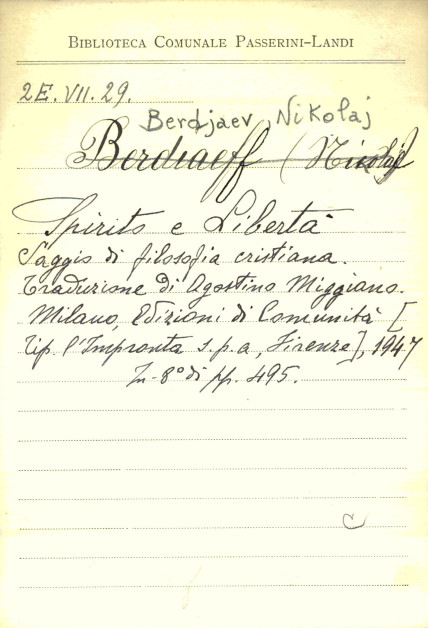 BIBLIOTECA COMUNALE PASSERINI-LANDI
2E. VII. 29.
Berdjaev, Nikolaj
Berdiaeff (Nicolaj)
Spirito e Libertà
Saggio di filosofia cristiana.
Traduzione di Agostino Miggiano.
Milano, Edizioni di Comunità [
Tip. l'Impronta s.p.a, Firenze], 1947
In-8° di pp. 495.
C